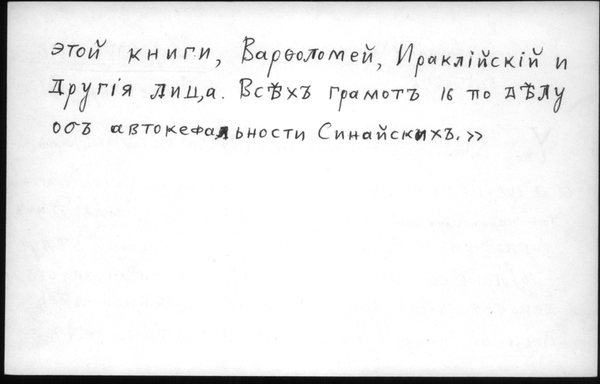 этой книги, Варѳоломей, Ираклійскій и
Другія лица. Всѣхъ грамотъ 16 по дѣлу
объ автокефальности Синайскихъ.»